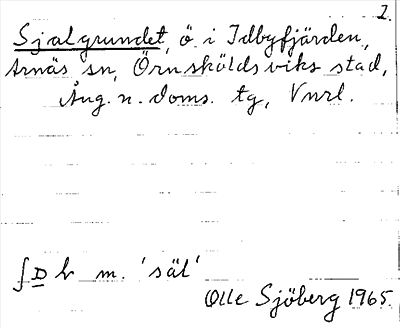 2.
Sjalgrundet, ö i Idbyfjärden,
Arnäs sn, Örnsköldsviks stad,
Ång. n. doms. tg, Vnrl.
m. 'säl'
Olle Sjöberg 1965.